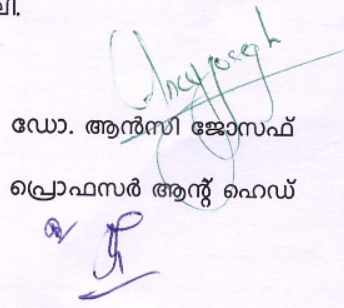 ലി.
Ancy Joseph
ഡോ. ആൻസി ജോസഫ്
പ്രൊഫസർ ആന്റ് ഹെഡ്